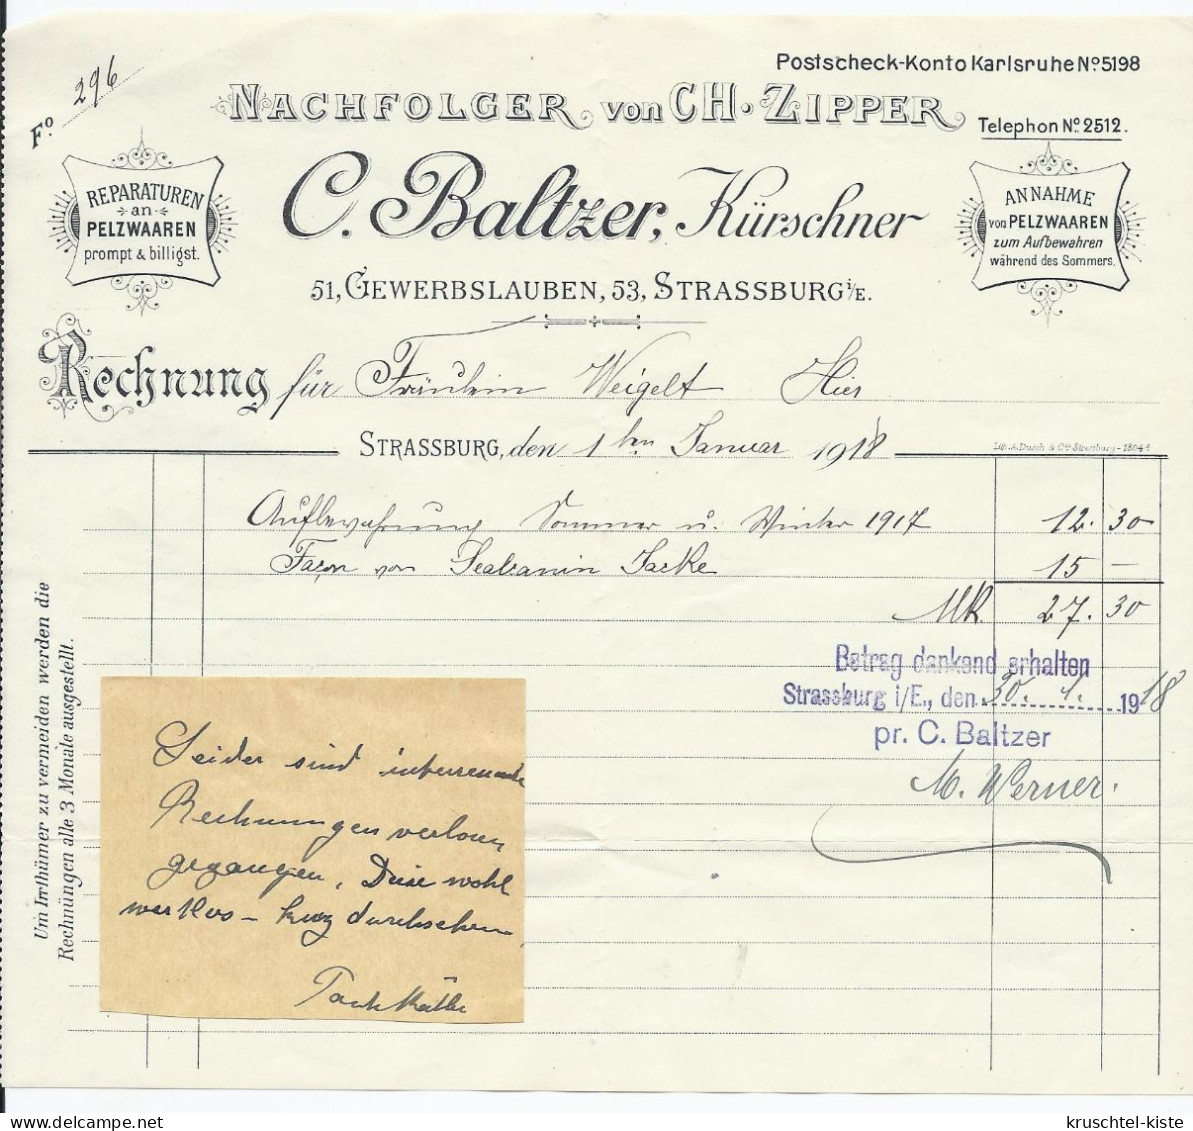 Postscheck-Konto Karlsruhe No. 5198
Fo. 296
NACHFOLGER von CH. ZIPPER
Telephon No. 2512.
C. Baltzer, Kürschner
REPARATUREN
an
PELZWAAREN
prompt & billigst.
ANNAHME
von PELZWAAREN
zum Aufbewahren
während des Sommers.
51, GEWERBSLAUBEN, 53, STRASSBURG i/E.
Rechnung für Fräulein Weigelt Hier
STRASSBURG, den 1ten Januar 1918
Lith. A. Dusch & Cie Strassburg - 1804
Aufbewahrung Sommer u. Winter 1917 12.30
Façon von Jacke 15 —
Mk. 27.30
Betrag dankend erhalten
Strassburg i/E., den 30. 1. 1918
pr. C. Baltzer
M. Werner.
Um Irrthümer zu vermeiden werden die
Rechnüngen alle 3 Monate ausgestellt.
Leider sind interessante
Rechnungen verloren
gegangen. Diese wohl
wertlos – kurz durchsehen
kruschtel-kiste
www.delcampe.net